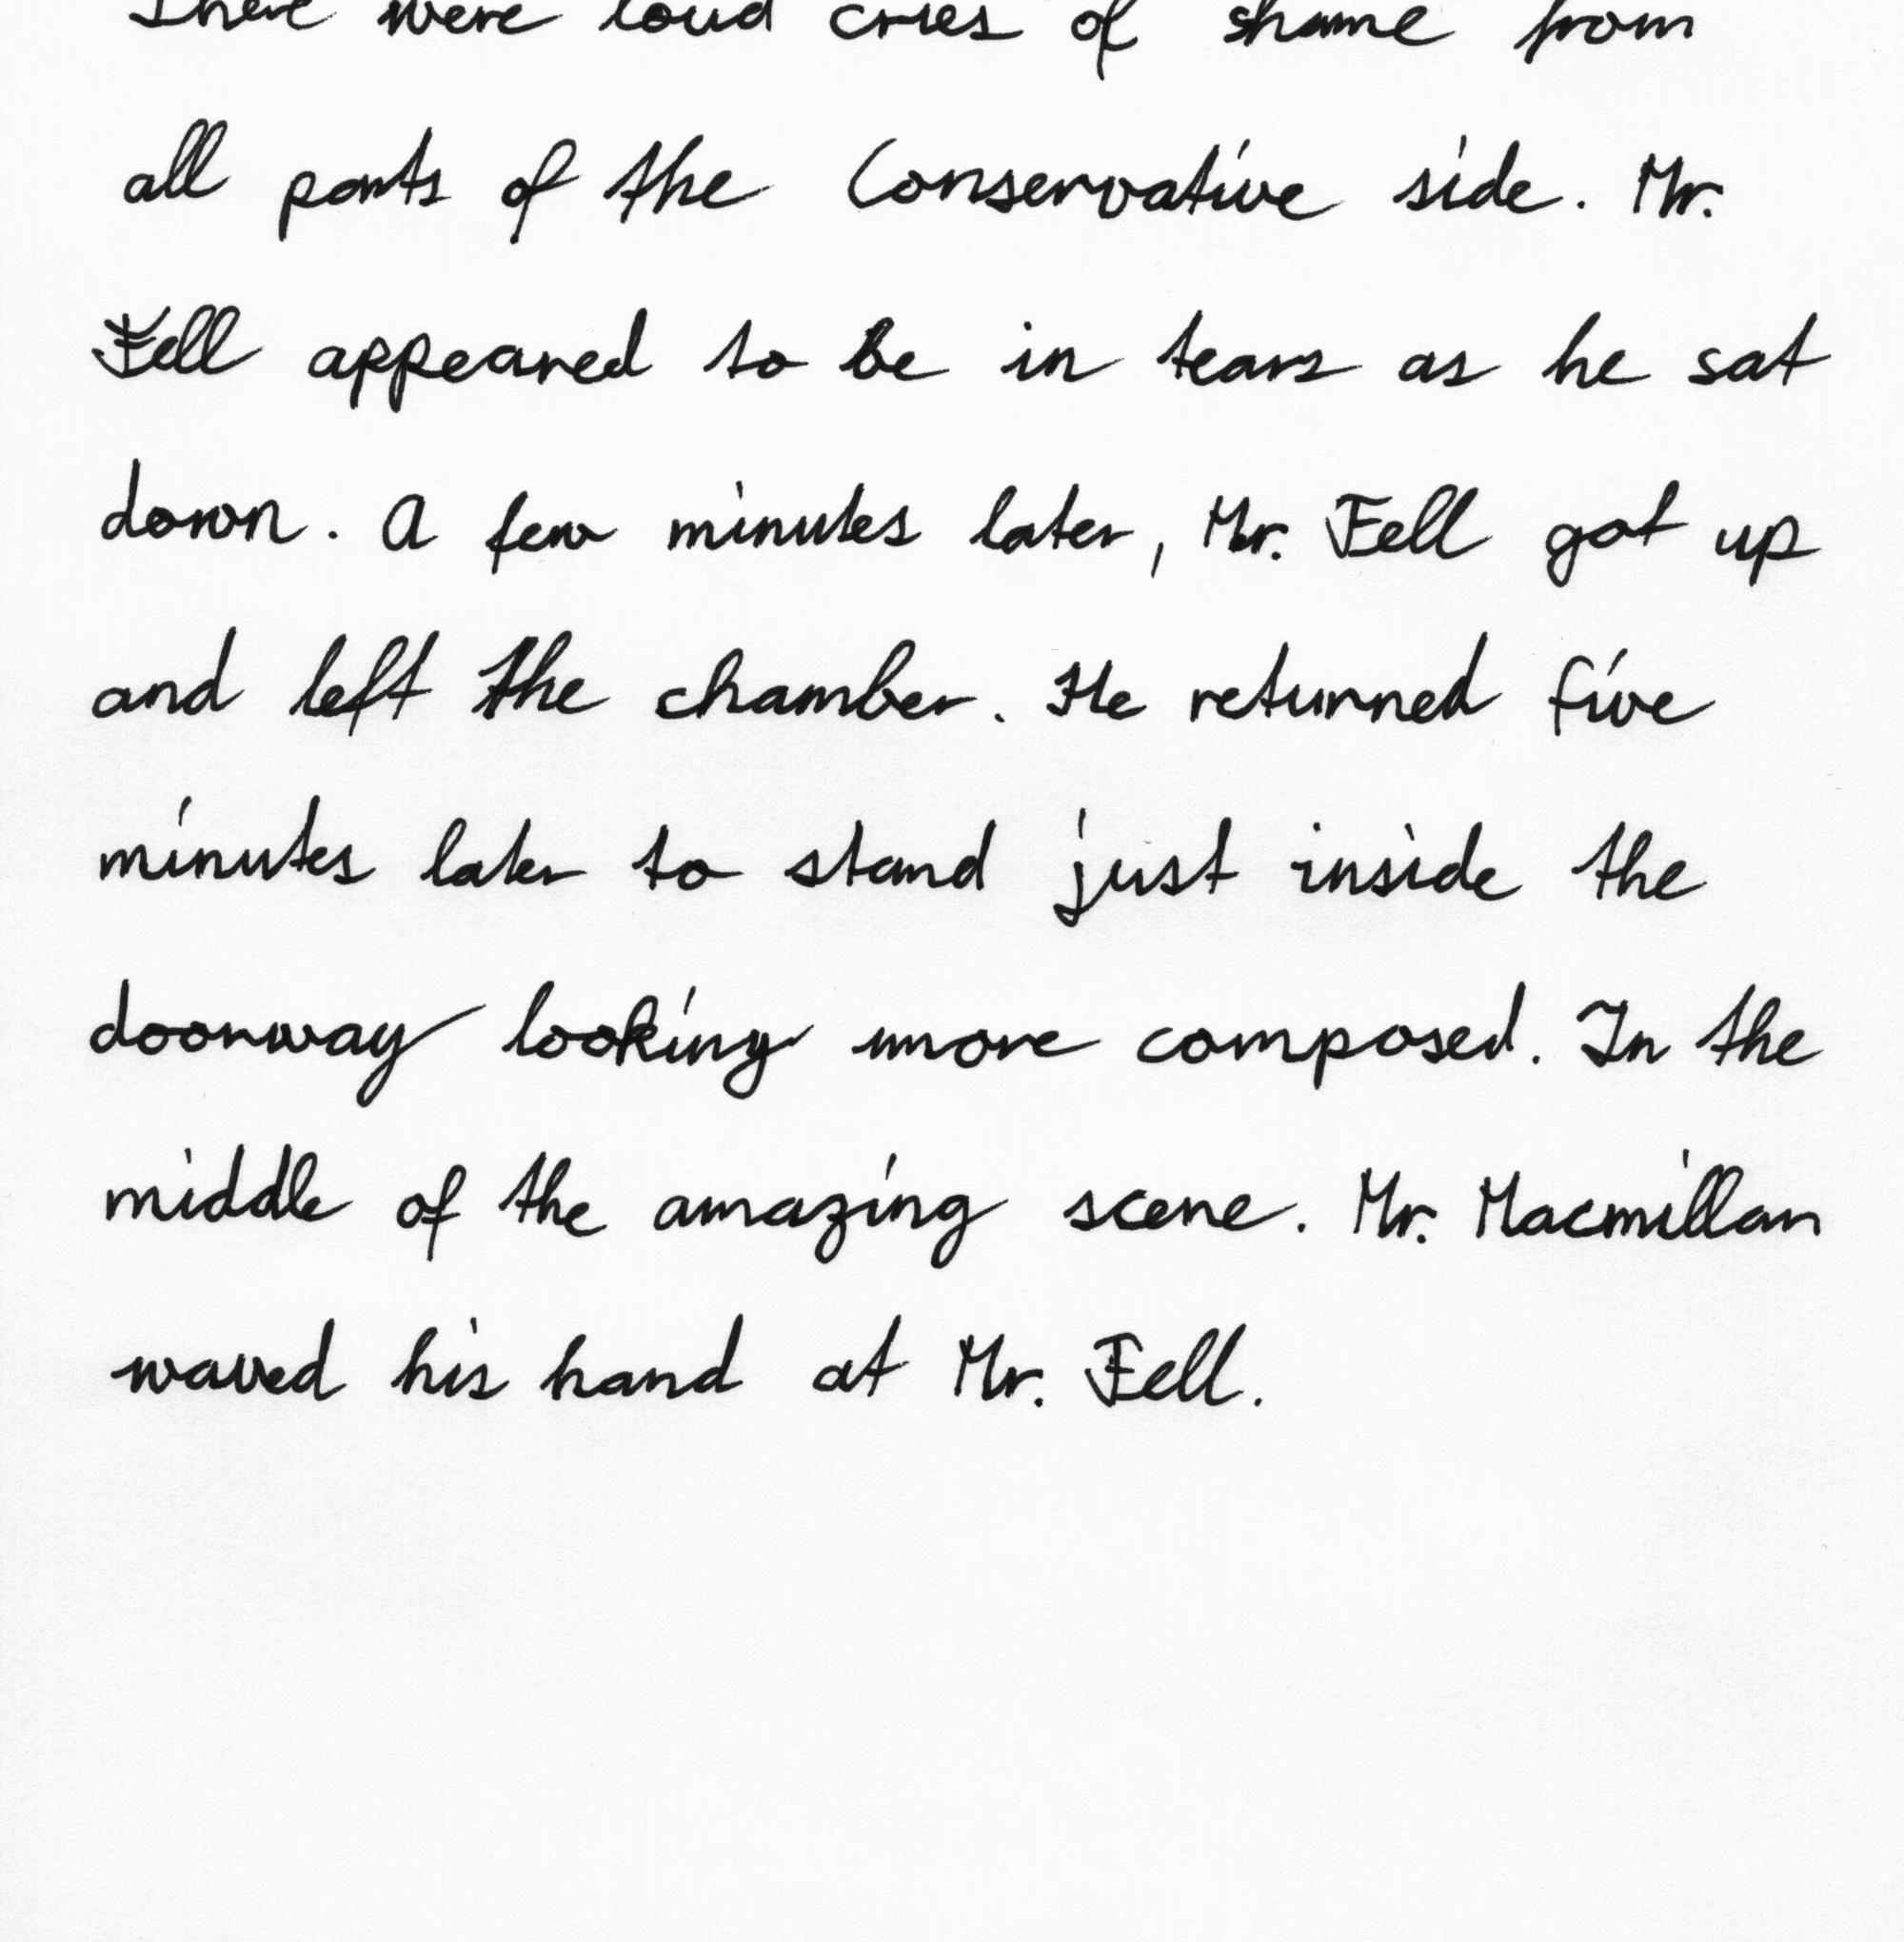 There were loud cries of shame from
all parts of the Conservative side. Mr.
Fell appeared to be in tears as he sat
down. A few minutes later, Mr. Fell got up
and left the chamber. He returned five
minutes later to stand just inside the
doorway looking more composed. In the
middle of the amazing scene. Mr. Macmillan
waved his hand at Mr. Fell.